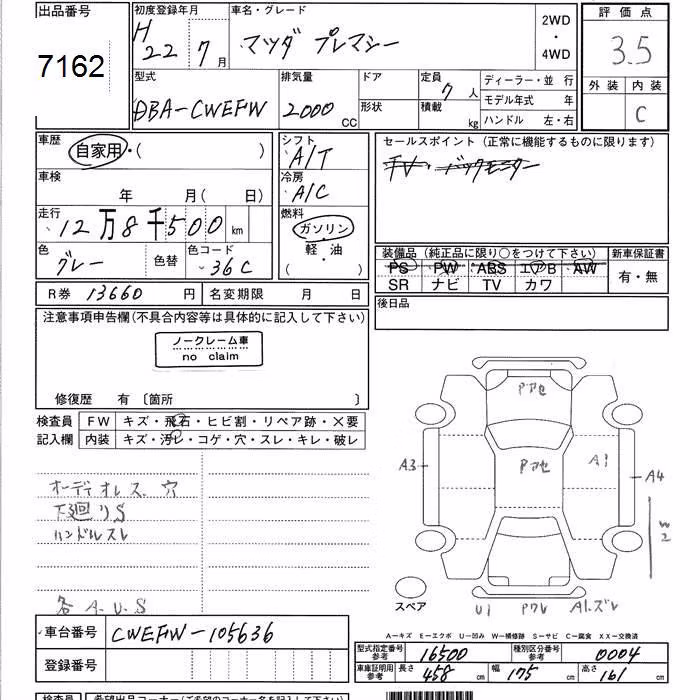 出品番号
7162
初度登録年月
H 22 7月
車名・グレード
マツダ プレマシー
2WD
・
4WD
評価点
3.5
外装 内装
C
型式
DBA-CWEFW
排気量
2000 CC
ドア
形状
定員
7人
積載
kg
ディーラー・並行
モデル年式 年
ハンドル 左・右
車歴
自家用・( )
シフト
A/T
セールスポイント(正常に機能するものに限ります)
TV・バックモニター
車検
年 月( 日)
冷房
A/C
走行
12万8千500km
燃料
ガソリン
・
軽・油
( )
色
グレー
色替
色コード
36C
装備品(純正品に限り○をつけて下さい)
PS PW ABS エアB AW
SR ナビ TV カワ
新車保証書
有・無
R券 13660円
名変期限 月 日
後日品
注意事項申告欄(不具合内容等は具体的に記入して下さい)
ノークレーム車
no claim
修復歴 有〔箇所 〕
検査員
記入欄
FW キズ・飛石・ヒビ割・リペア跡・×要
内装 キズ・汚レ・コゲ・穴・スレ・キレ・破レ
オーディオレス 穴
下廻りS
ハンドルスレ
各A.U.S
Pアセ
A3
Pアセ
A1
A4
W2
スペア
U1 PワレA1.ズレ
A-キズ E-エクボ U-凹み W-補修跡 S-サビ C-腐食 XX-交換済
車台番号
CWEFW-105636
登録番号
型式指定番号
参考
16500
種別区分番号
参考
0004
車庫証明用
参考
長さ
458cm
幅
175cm
高さ
161cm
検査員
希望出品コーナー(ご希望のコーナー名を記入下さい)